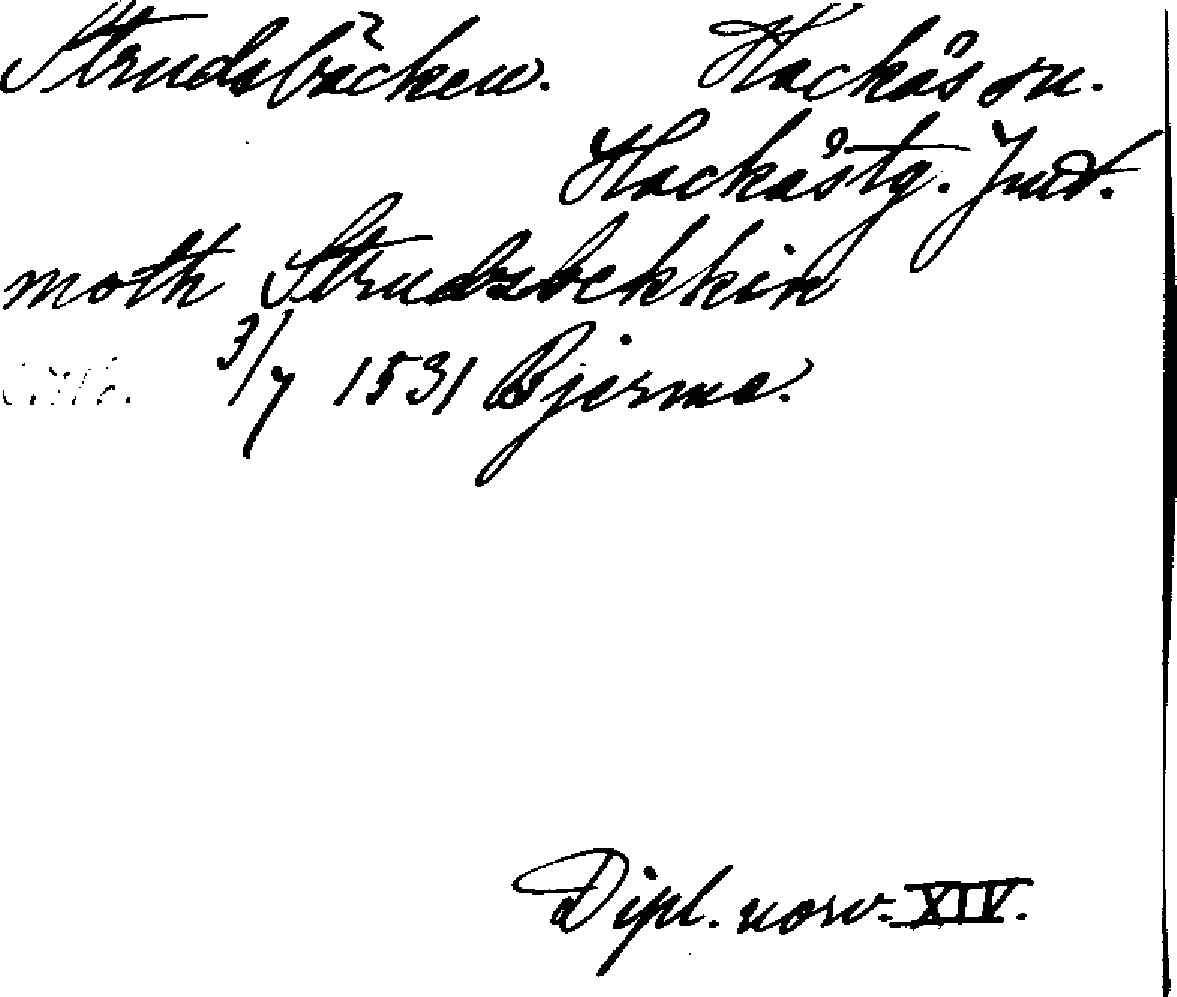 Strudsbäcken. Hackås sn.
Hackåstg. Jmt.
moth Strudzbekkin
3/7 1531 Bjerme.
Dipl. norv. XIV.